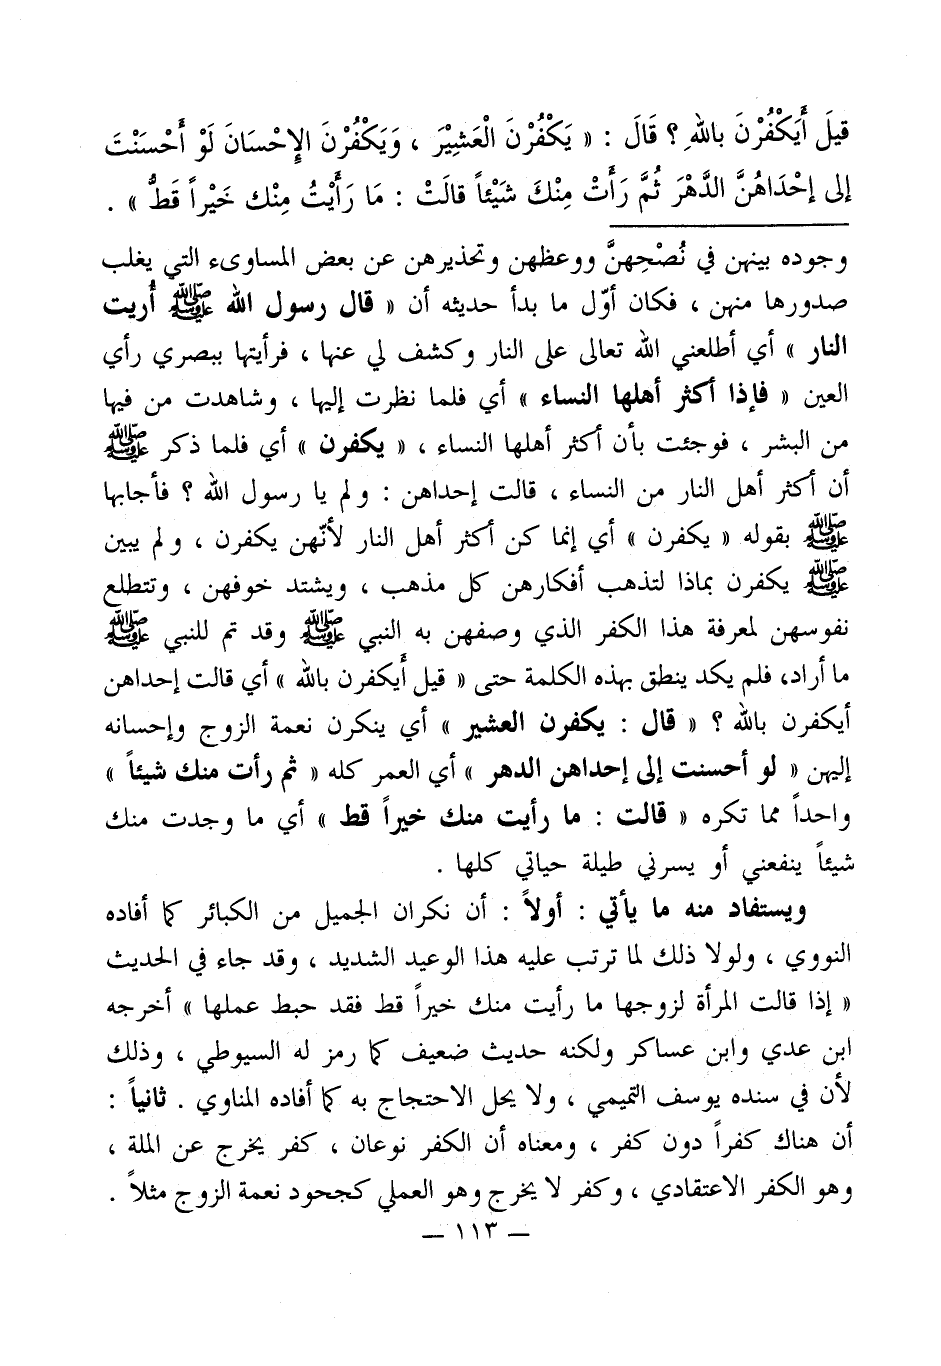 قيلَ أَيَكْفُرْنَ باللهِ ؟ قَالَ : « يَكْفُرْنَ الْعَشِيْرَ ، وَيَكْفُرْنَ الإِحْسَانَ لَوْ أَحْسَنْتَ
إلى إحْدَاهُنَّ الدَّهْرَ ثُمَّ رَأَتْ مِنْكَ شَيْئاً قالَتْ : مَا رَأَيْتُ مِنْك خَيْراً قَطُّ » .
وجوده بينهن في نُصْحِهنَّ ووعظهن وتحذيرهن عن بعض المساوىء التي يغلب
صدورها منهن ، فكان أوّل ما بدأ حديثه أن « قال رسول الله ﷺ أُريت
النار » أي أطلعني الله تعالى على النار وكشف لي عنها ، فرأيتها ببصري رأي
العين « فإذا أكثر أهلها النساء » أي فلما نظرت إليها ، وشاهدت من فيها
من البشر ، فوجئت بأن أكثر أهلها النساء ، « يكفرن » أي فلما ذكر ﷺ
أن أكثر أهل النار من النساء ، قالت إحداهن : ولم يا رسول الله ؟ فأجابها
ﷺ بقوله « يكفرن » أي إنما كن أكثر أهل النار لأنّهن يكفرن ، ولم يبين
ﷺ يكفرن بماذا لتذهب أفكارهن كل مذهب ، ويشتد خوفهن ، وتتطلع
نفوسهن لمعرفة هذا الكفر الذي وصفهن به النبي ﷺ وقد تم للنبي ﷺ
ما أراد، فلم يكد ينطق بهذه الكلمة حتى « قيل أَيكفرن بالله » أي قالت إحداهن
أيكفرن بالله ؟ « قال : يكفرن العشير » أي ينكرن نعمة الزوج وإحسانه
إليهن « لو أحسنت إلى إحداهن الدهر » أي العمر كله « ثم رأت منك شيئاً »
واحداً مما تكره « قالت : ما رأيت منك خيراً قط » أي ما وجدت منك
شيئاً ينفعني أو يسرني طيلة حياتي كلها .
ويستفاد منه ما يأتي : أولاً : أن نكران الجميل من الكبائر كما أفاده
النووي ، ولولا ذلك لما ترتب عليه هذا الوعيد الشديد ، وقد جاء في الحديث
« إذا قالت المرأة لزوجها ما رأيت منك خيراً قط فقد حبط عملها » أخرجه
ابن عدي وابن عساكر ولكنه حديث ضعيف كما رمز له السيوطي ، وذلك
لأن في سنده يوسف التميمي ، ولا يحل الاحتجاج به كما أفاده المناوي . ثانياً :
أن هناك كفراً دون كفر ، ومعناه أن الكفر نوعان ، كفر يخرج عن الملة ،
وهو الكفر الاعتقادي ، وكفر لا يخرج وهو العملي كجحود نعمة الزوج مثلاً .
— ١١٣ —